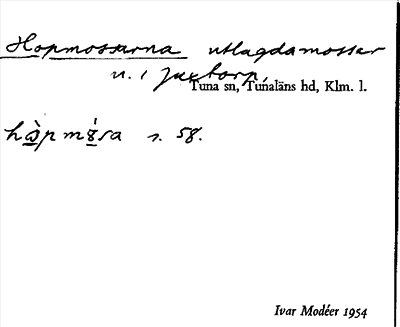 Hopmossarna utlagda mossar
n. i Juxtorp.
Tuna sn, Tunaläns hd, Klm. l.
hɔ̀pmɤ́sa s. 58.
Ivar Modéer 1954